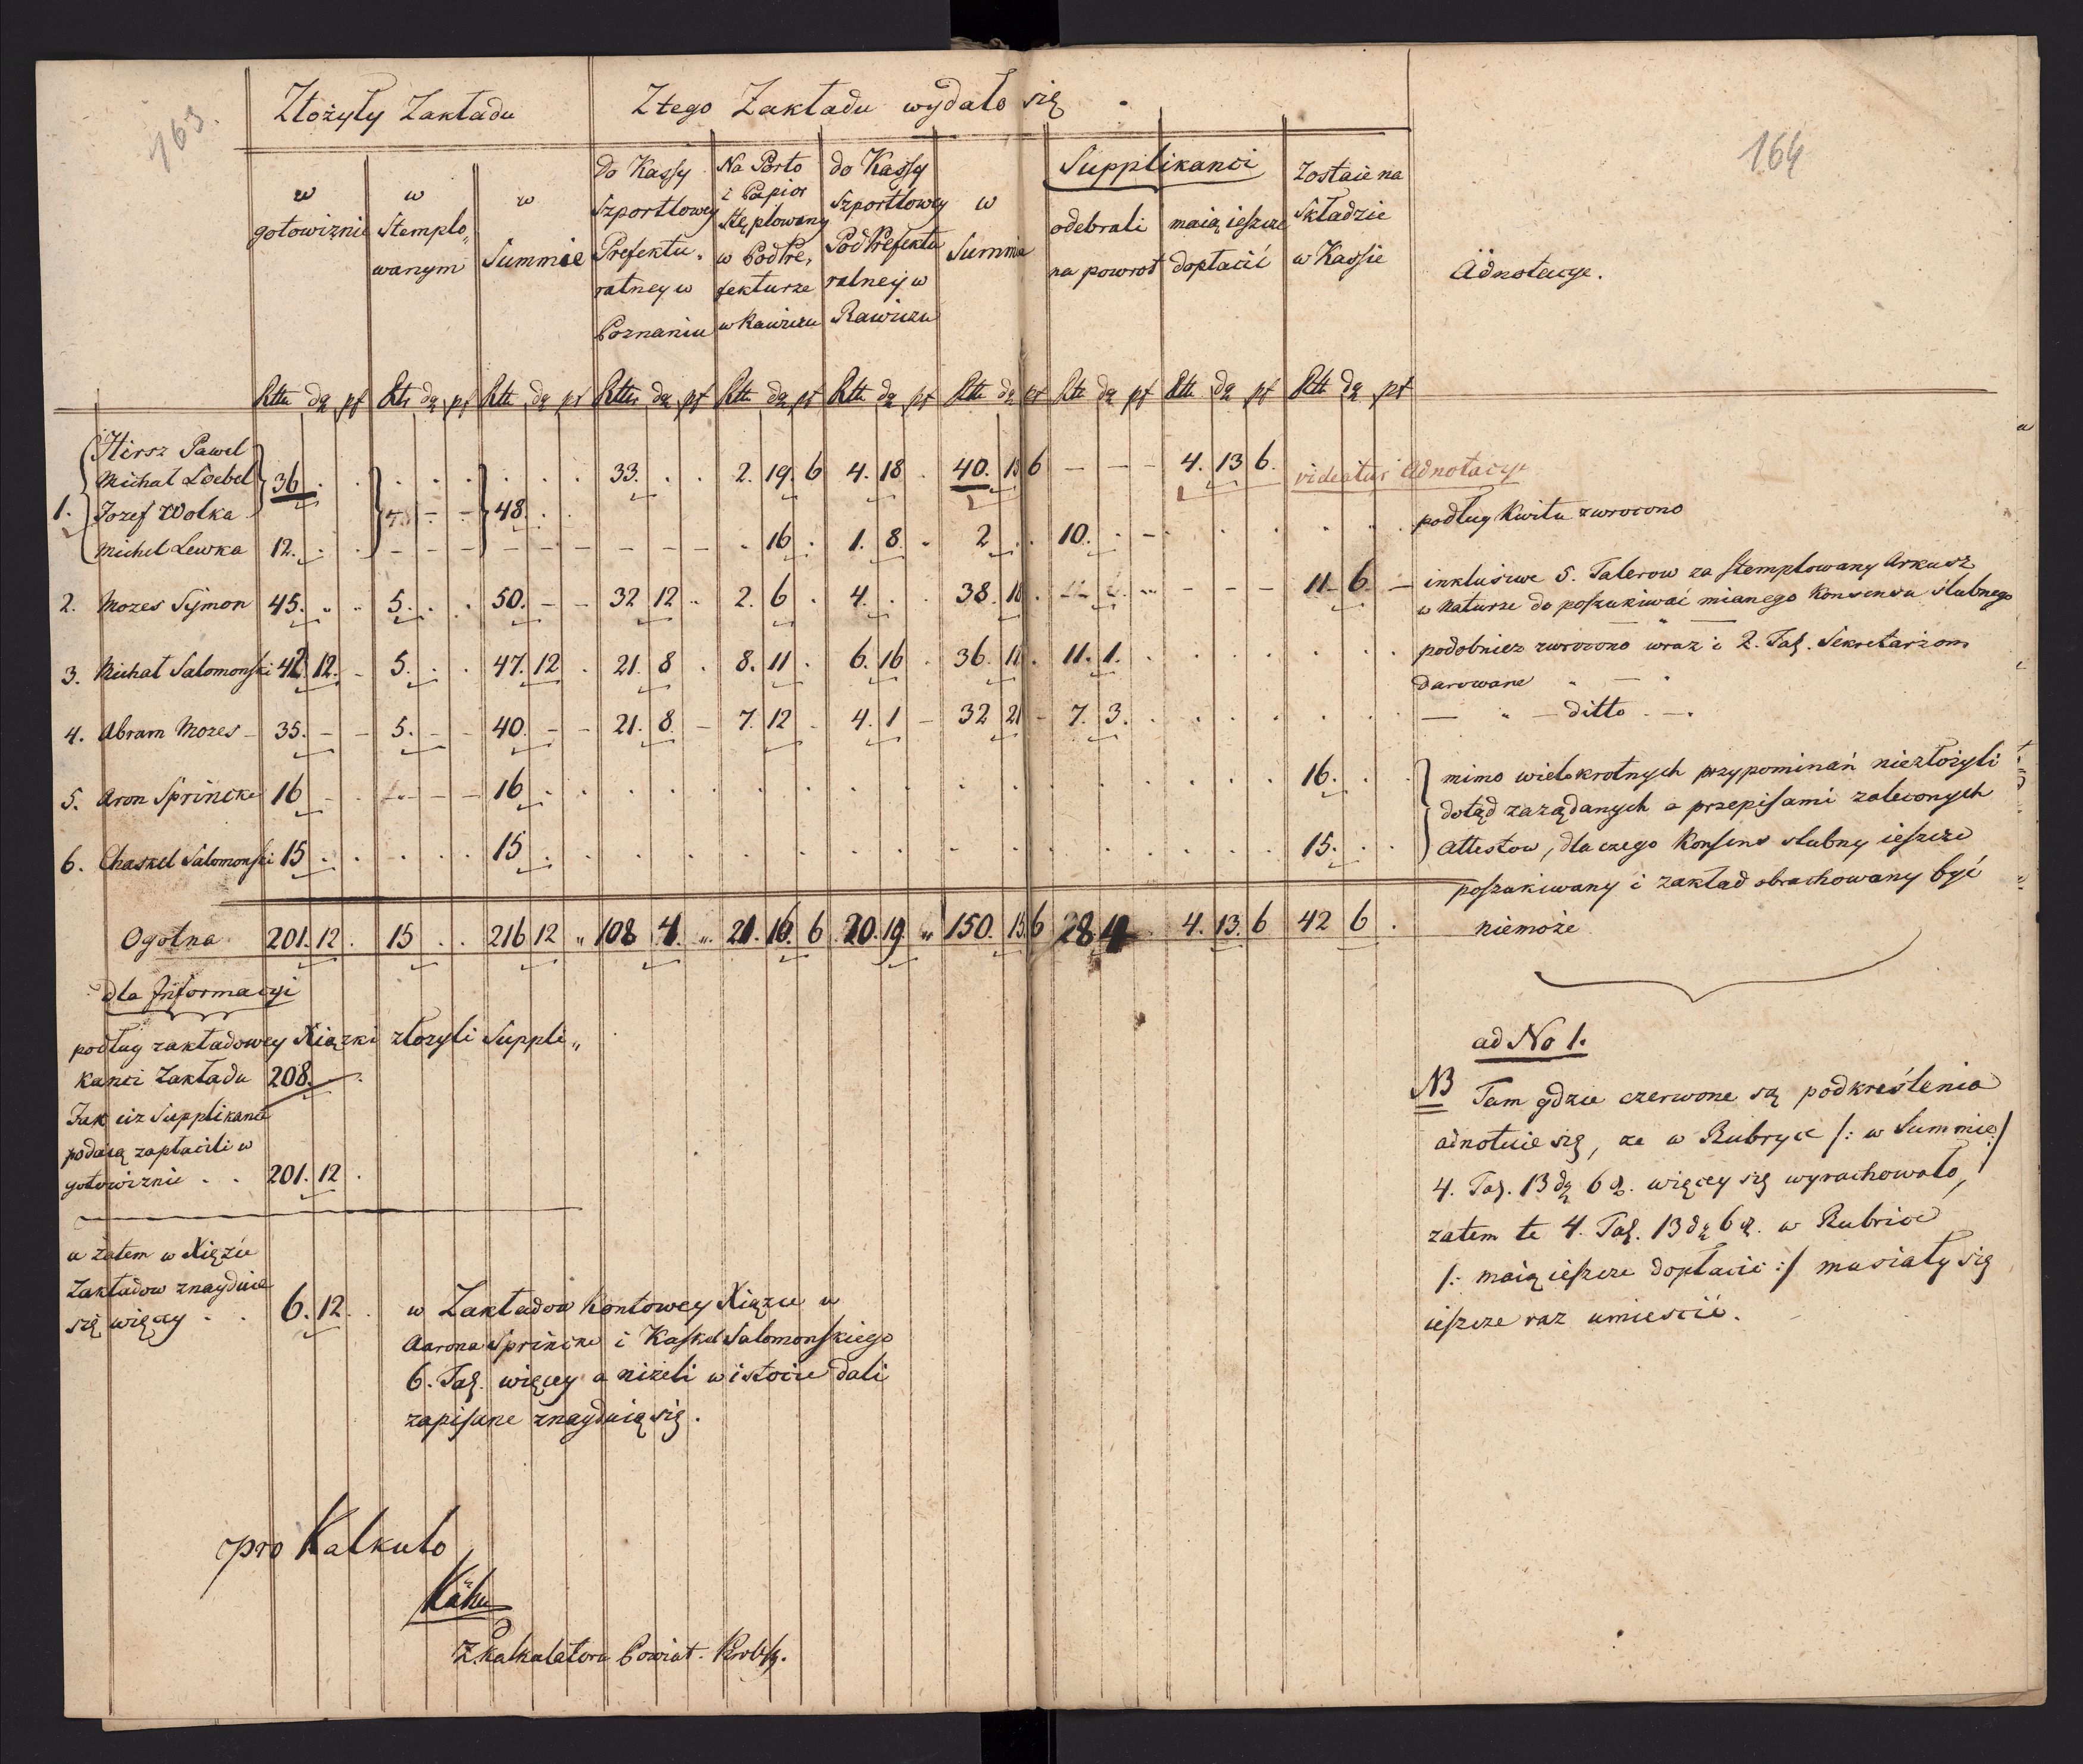 163.
164
Złożyły Zakładu
Z tego Zakładu wydało się
w gotowiznie
w Stemplo„ wanym
w Summie
do Kassy Szportlowey Prefektu„ ralney w Poznaniu
Na Porto i Papier stęplowany w PodPre„ fekturze w Rawiczu
do Kassy Szportlowey PodPrefektu ralney w Rawiczu
w Summie
Supplikanci
odebrali na powrot
maią ieszcze dopłacić
Zostaie na Składzie w Kassie
Adnotacye.
1. Hirsz Pawel
Michał Loebel 36 . . 33. . . 2. 19. 6 4. 18 . 40. 13 6 – – – 4. 13 6. videatur Adnotacye
Jozef Wolka 48. . .
Michel Lewka 12. . . – – – – – – – – – . 16 . 1. 8. . 2 . . 10. . – podług Kwitu zwrocono
2. Mozes Symon 45. „ „ 5. . . 50. – – 32 12 „ 2. 6 . 4. . . 38. 18 . – – – 11 6 – inklusiwe 5. Talerow za stemplowany Arkusz
w naturze do poszukiwać mianego Konsensu slubnego
3. Michał Salomonski 42. 12. – 5. . . 47. 12 . 21. 8 . 8. 11 . 6. 16 . 36. 11 . 11. 1. . podobniez zwrocono wraz i 2. Tal. Sekretarzom
darowane
4. Abram Mozes – 35. – – 5. – – 40. – – 21. 8. – 7. 12 – 4. 1 – 32 21 – 7. 3. . – „ – ditto . –.
5. Aron Sprincke 16 – . 16 . . 16. . . mimo wielokrotnych przypominań niezłożyli
dotąd zarządanych a przepisami zaleconych
6. Chaskel Salomonski 15 . . . . . 15 . . 15. . . Attestow, dla czego Konsens slubny ieszcze
poszukiwany i zakład obrachowany być
niemoże
Ogolna 201. 12 . 15 . . 216 12 „ 108 4. „ 21. 16. 6 20. 19 „ 150. 15. 6 28. 4 4. 13. 6 42 6 .
dla Informacyi
podług zakładowey Xiązki złozyli Suppli„
kanci Zakładu 208.
Jak ciz Supplikanci
podaią zapłacili w
gotowiznie . . 201. 12 .
a zatem w Xięzie
Zakładow znayduie
się więcey . . 6. 12 .
w Zakładow Kontowey Xiązce u
Aarona Sprincke i Kaskel Salomonskiego
6. Tal. więcey a niżeli w istocie dali
zapisane znayduią się.
ad No 1.
NB Tam gdzie czerwone są podkreślenia
adnotuie się, że w Rubryce /: w Summie :/
4. Tal. 13 dg 6 d. więcey się wyrachowało,
zatem te 4. Tal. 13 dg 6 d. w Rubrice
/: maią ieszcze dopłacić :/ musiały się
ieszcze raz umieścić.
pro Kalkulo
Z. Kalkulator Powiat.